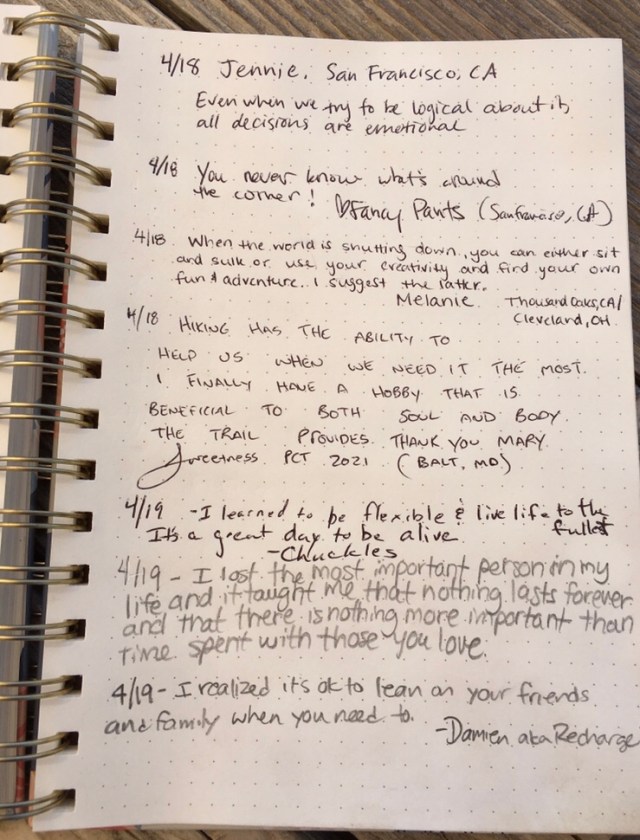 4/18 Jennie, San Francisco, CA
Even when we try to be logical about it,
all decisions are emotional
4/18 You never know what's around
the corner! Fancy Pants (San Francisco, CA)
4/18 When the world is shutting down, you can either sit
and sulk or use your creativity and find your own
fun & adventure. I suggest the latter.
Melanie Thousand Oaks, CA/
Cleveland, OH
4/18 HIKING HAS THE ABILITY TO
HELP US WHEN WE NEED IT THE MOST.
I FINALLY HAVE A HOBBY THAT IS
BENEFICIAL TO BOTH SOUL AND BODY.
THE TRAIL PROVIDES. THANK YOU MARY
Sweetness PCT 2021 (BALT, MD)
4/19 - I learned to be flexible & live life to the
fullest
It's a great day to be alive
- Chuckles
4/19 - I lost the most important person in my
life and it taught me that nothing lasts forever
and that there is nothing more important than
time spent with those you love.
4/19 - I realized it's ok to lean on your friends
and family when you need to.
- Damien aka Recharge